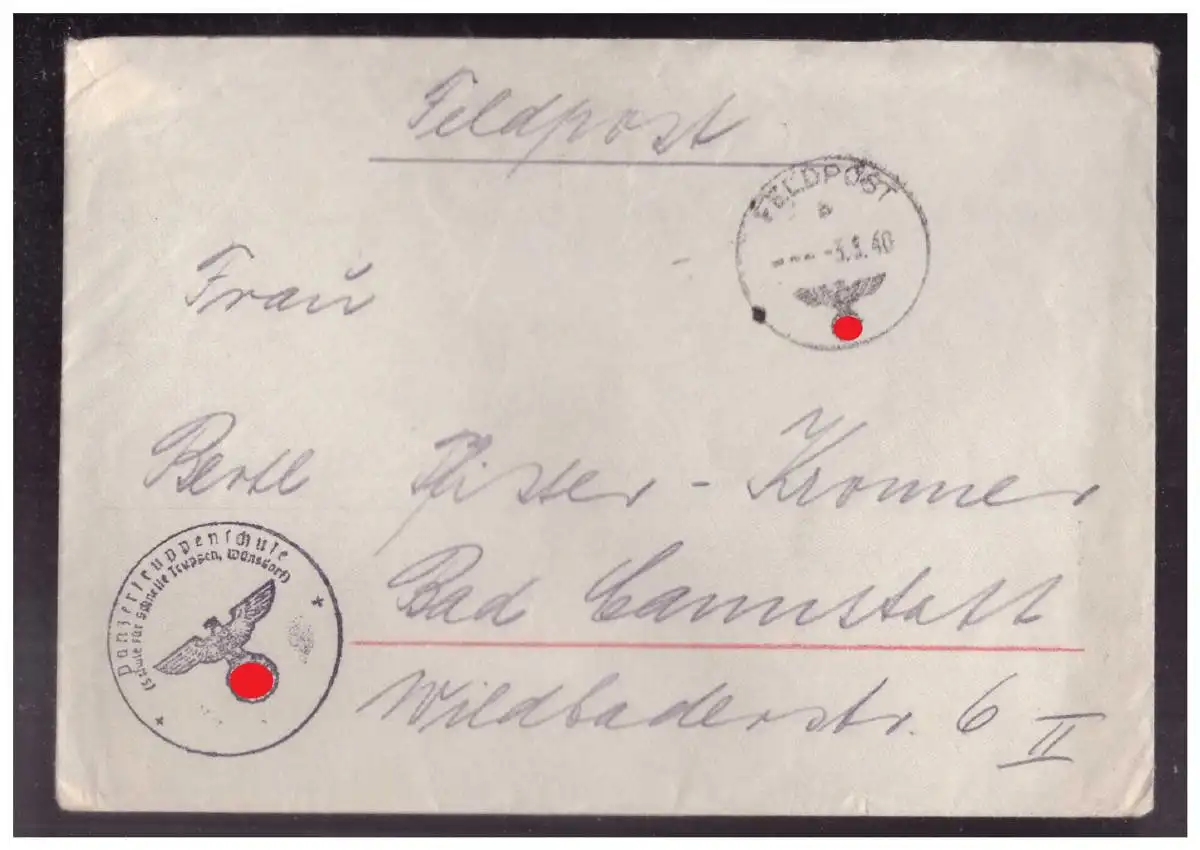 Feldpost
FELDPOST
a
--- -3.3.40
Frau
Bertl Pfister-Kronner
Panzertruppenschule
(Schule für Schnelle Truppen, Wünsdorf)
Bad Cannstatt
Wildbaderstr. 6 II